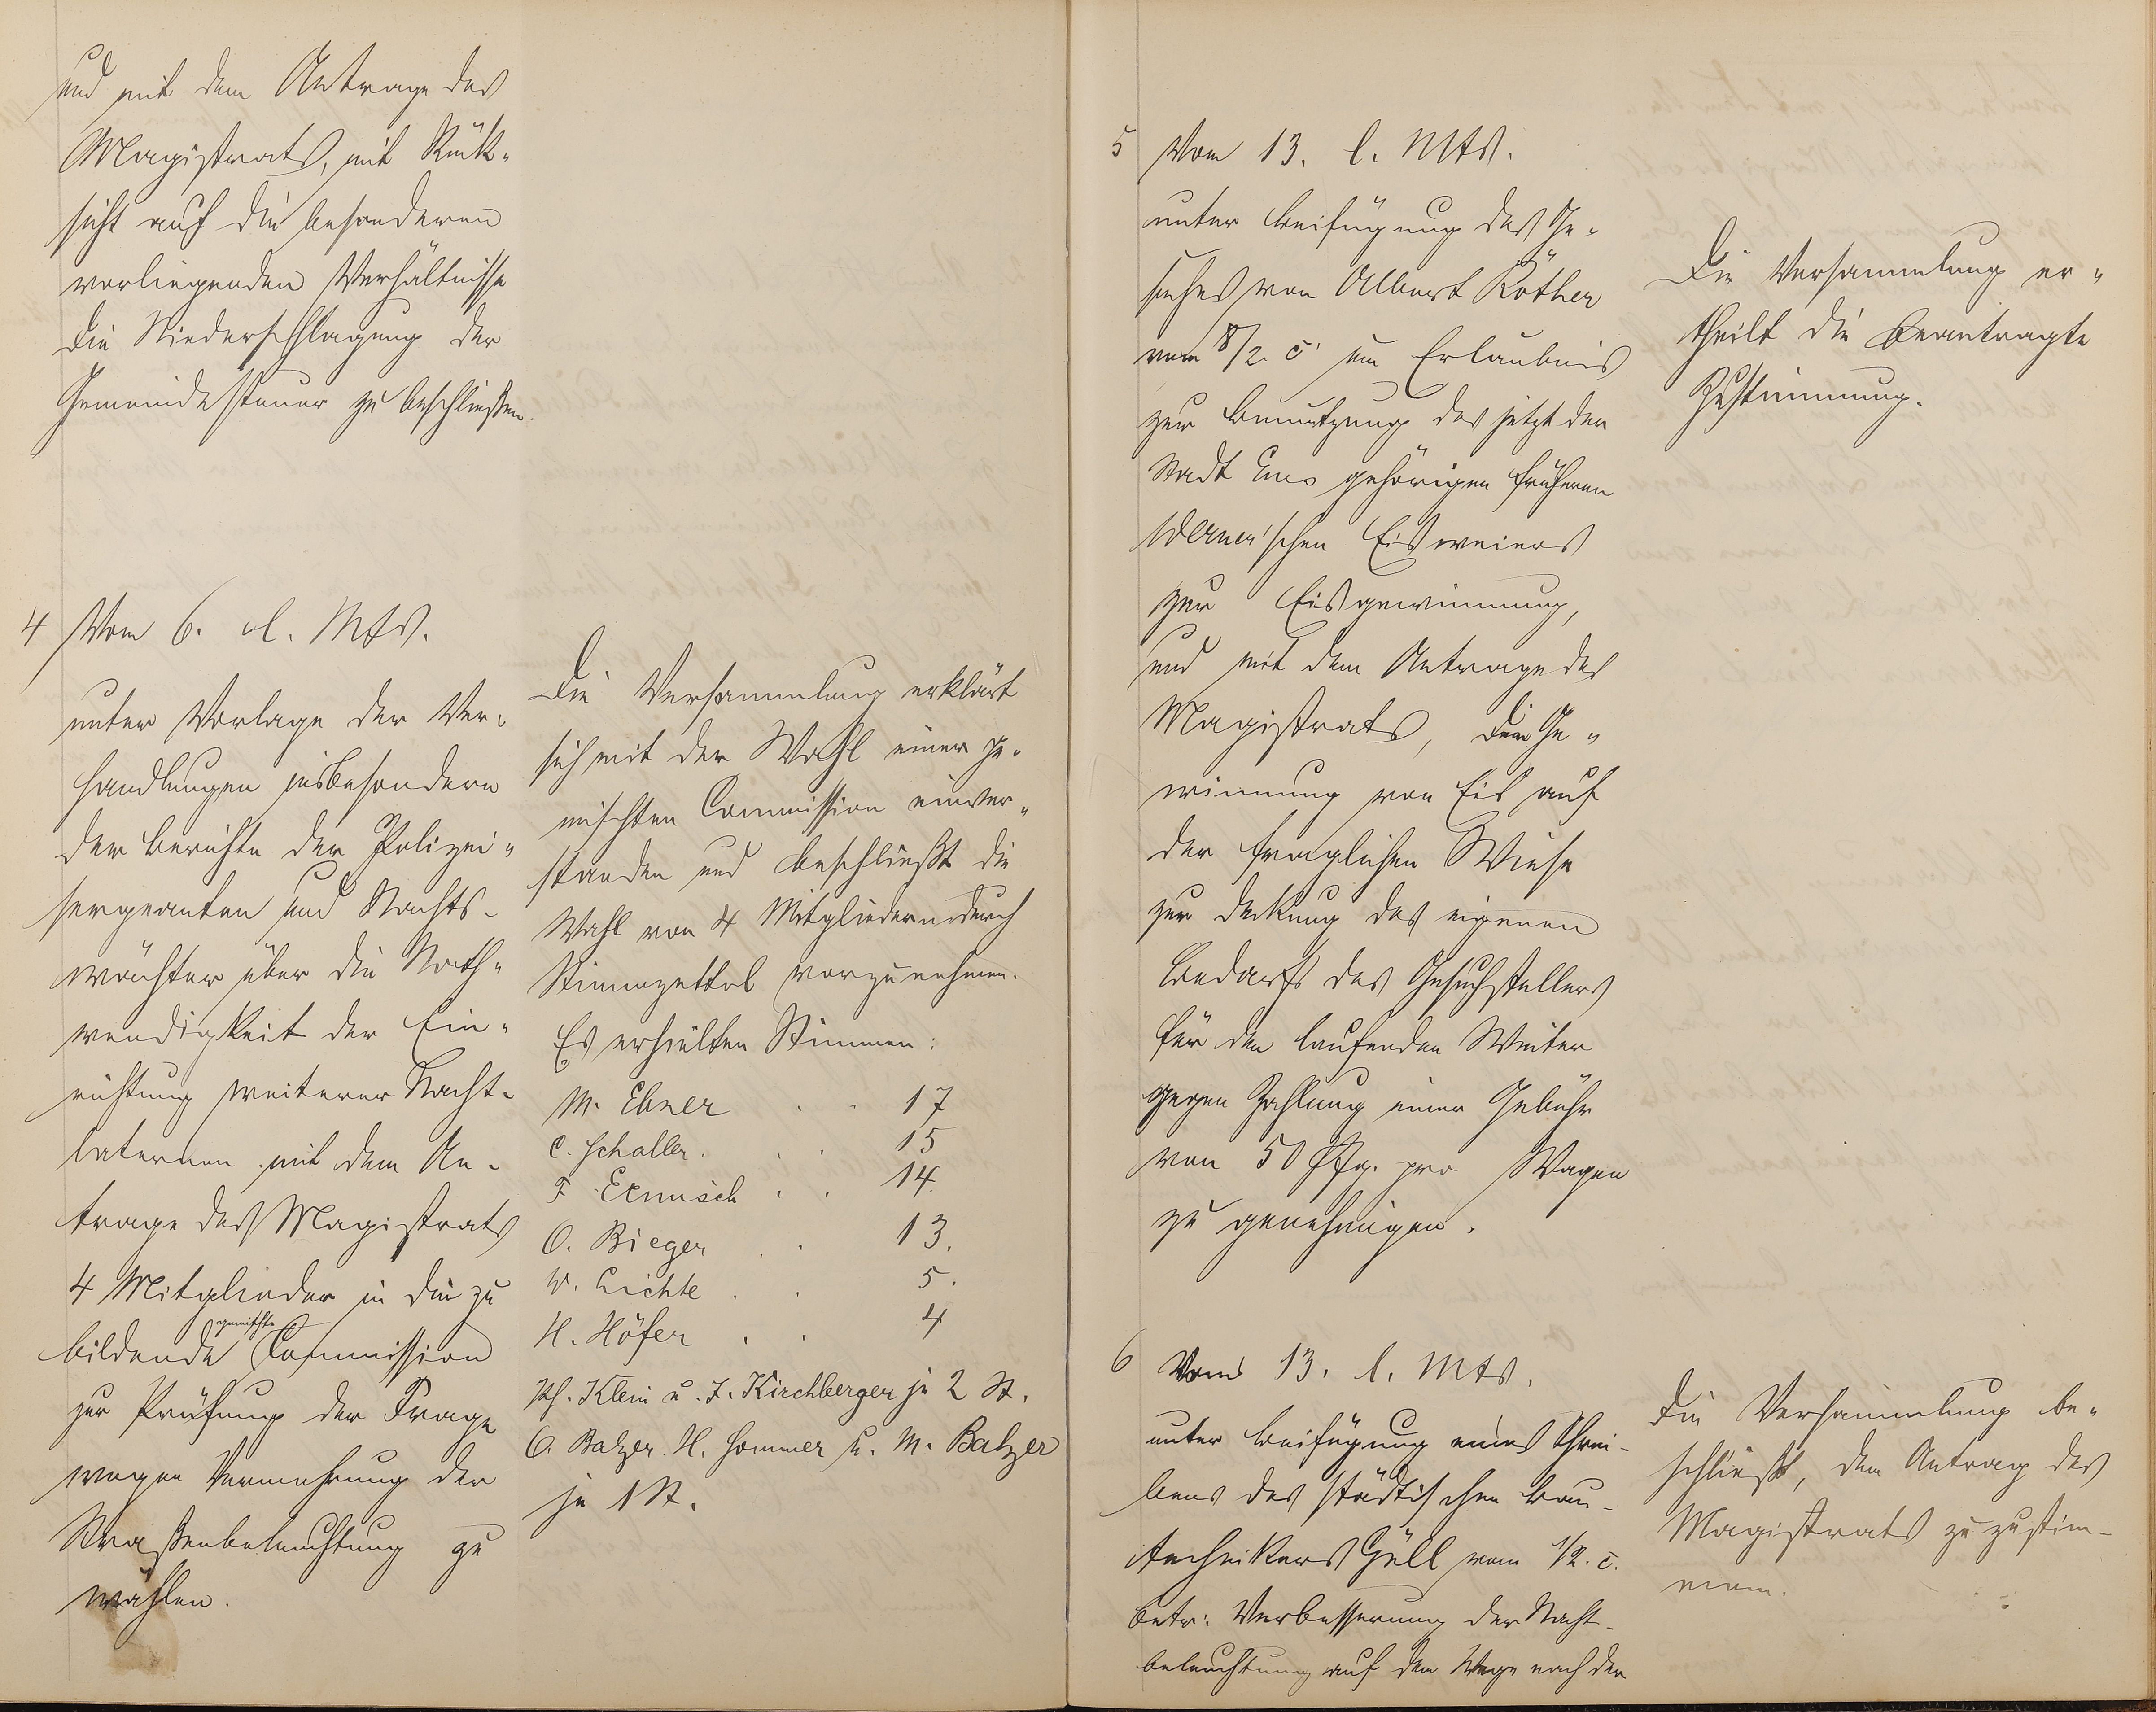 und mit dem Antrage des
Magistrats, mit Rück-
sicht auf die besonderen
vorliegenden Verhältnisse
die Niederschlagung der
Gemeindesteuer zu beschließen.
4 Vom 6. l. Mts.
unter Vorlage der Ver-
handlungen insbesondere
der Berichte der Polizei-
sergeanten und Nachts-
wächter über die Noth-
wendigkeit der Ein-
richtung weiterer Nacht-
laternen mit dem An-
trage des Magistrats
4 Mitglieder in die zu
bildende gemischte Commission
zur Prüfung der Frage
wegen Vermehrung der
Straßenbeleuchtung zu
wählen.
Die Versammlung erklärt
sich mit der Wahl einer ge-
mischten Commission einver-
standen und beschließt die
Wahl von 4 Mitgliedern durch
Stimmzettel vorzunehmen.
Es erhielten Stimmen:
M. Ebner . . 17
C. Schaller . . . 15
F. Ermisch . . 14.
O. Bieger . . 13.
W. Lichte . . 5.
H. Höfer . . 4
Ph. Klein u. J. Kirchberger je 2 St.
O. Balzer H. Sommer u. M. Balzer
je 1 St.
5 Vom 13. l. Mts.
unter Beifügung des Ge-
suches von Albert Köther
vom 8/2. c. um Erlaubnis
zur Benutzung des jetzt der
Stadt Ems gehörigen früheren
Werner'schen Eisweiers
zur Eisgewinnung,
und mit dem Antrage des
Magistrats, die Ge-
winnung von Eis auf
der fraglichen Wiese
zur Deckung des eigenen
Bedarfs des Gesuchstellers
für den laufenden Winter
gegen Zahlung einer Gebühr
von 50 Pfg. pro Wagen
zu genehmigen.
Die Versammlung er-
theilt die beantragte
Zustimmung.
6 Vom 13. l. Mts.
unter Beifügung eines Schrei-
bens des städtischen Bau-
technikers Güll vom 1/2. c.
betr: Verbesserung der Nacht-
beleuchtung auf dem Wege nach der
Die Versammlung be-
schließt, dem Antrag des
Magistrats zuzustim-
men.